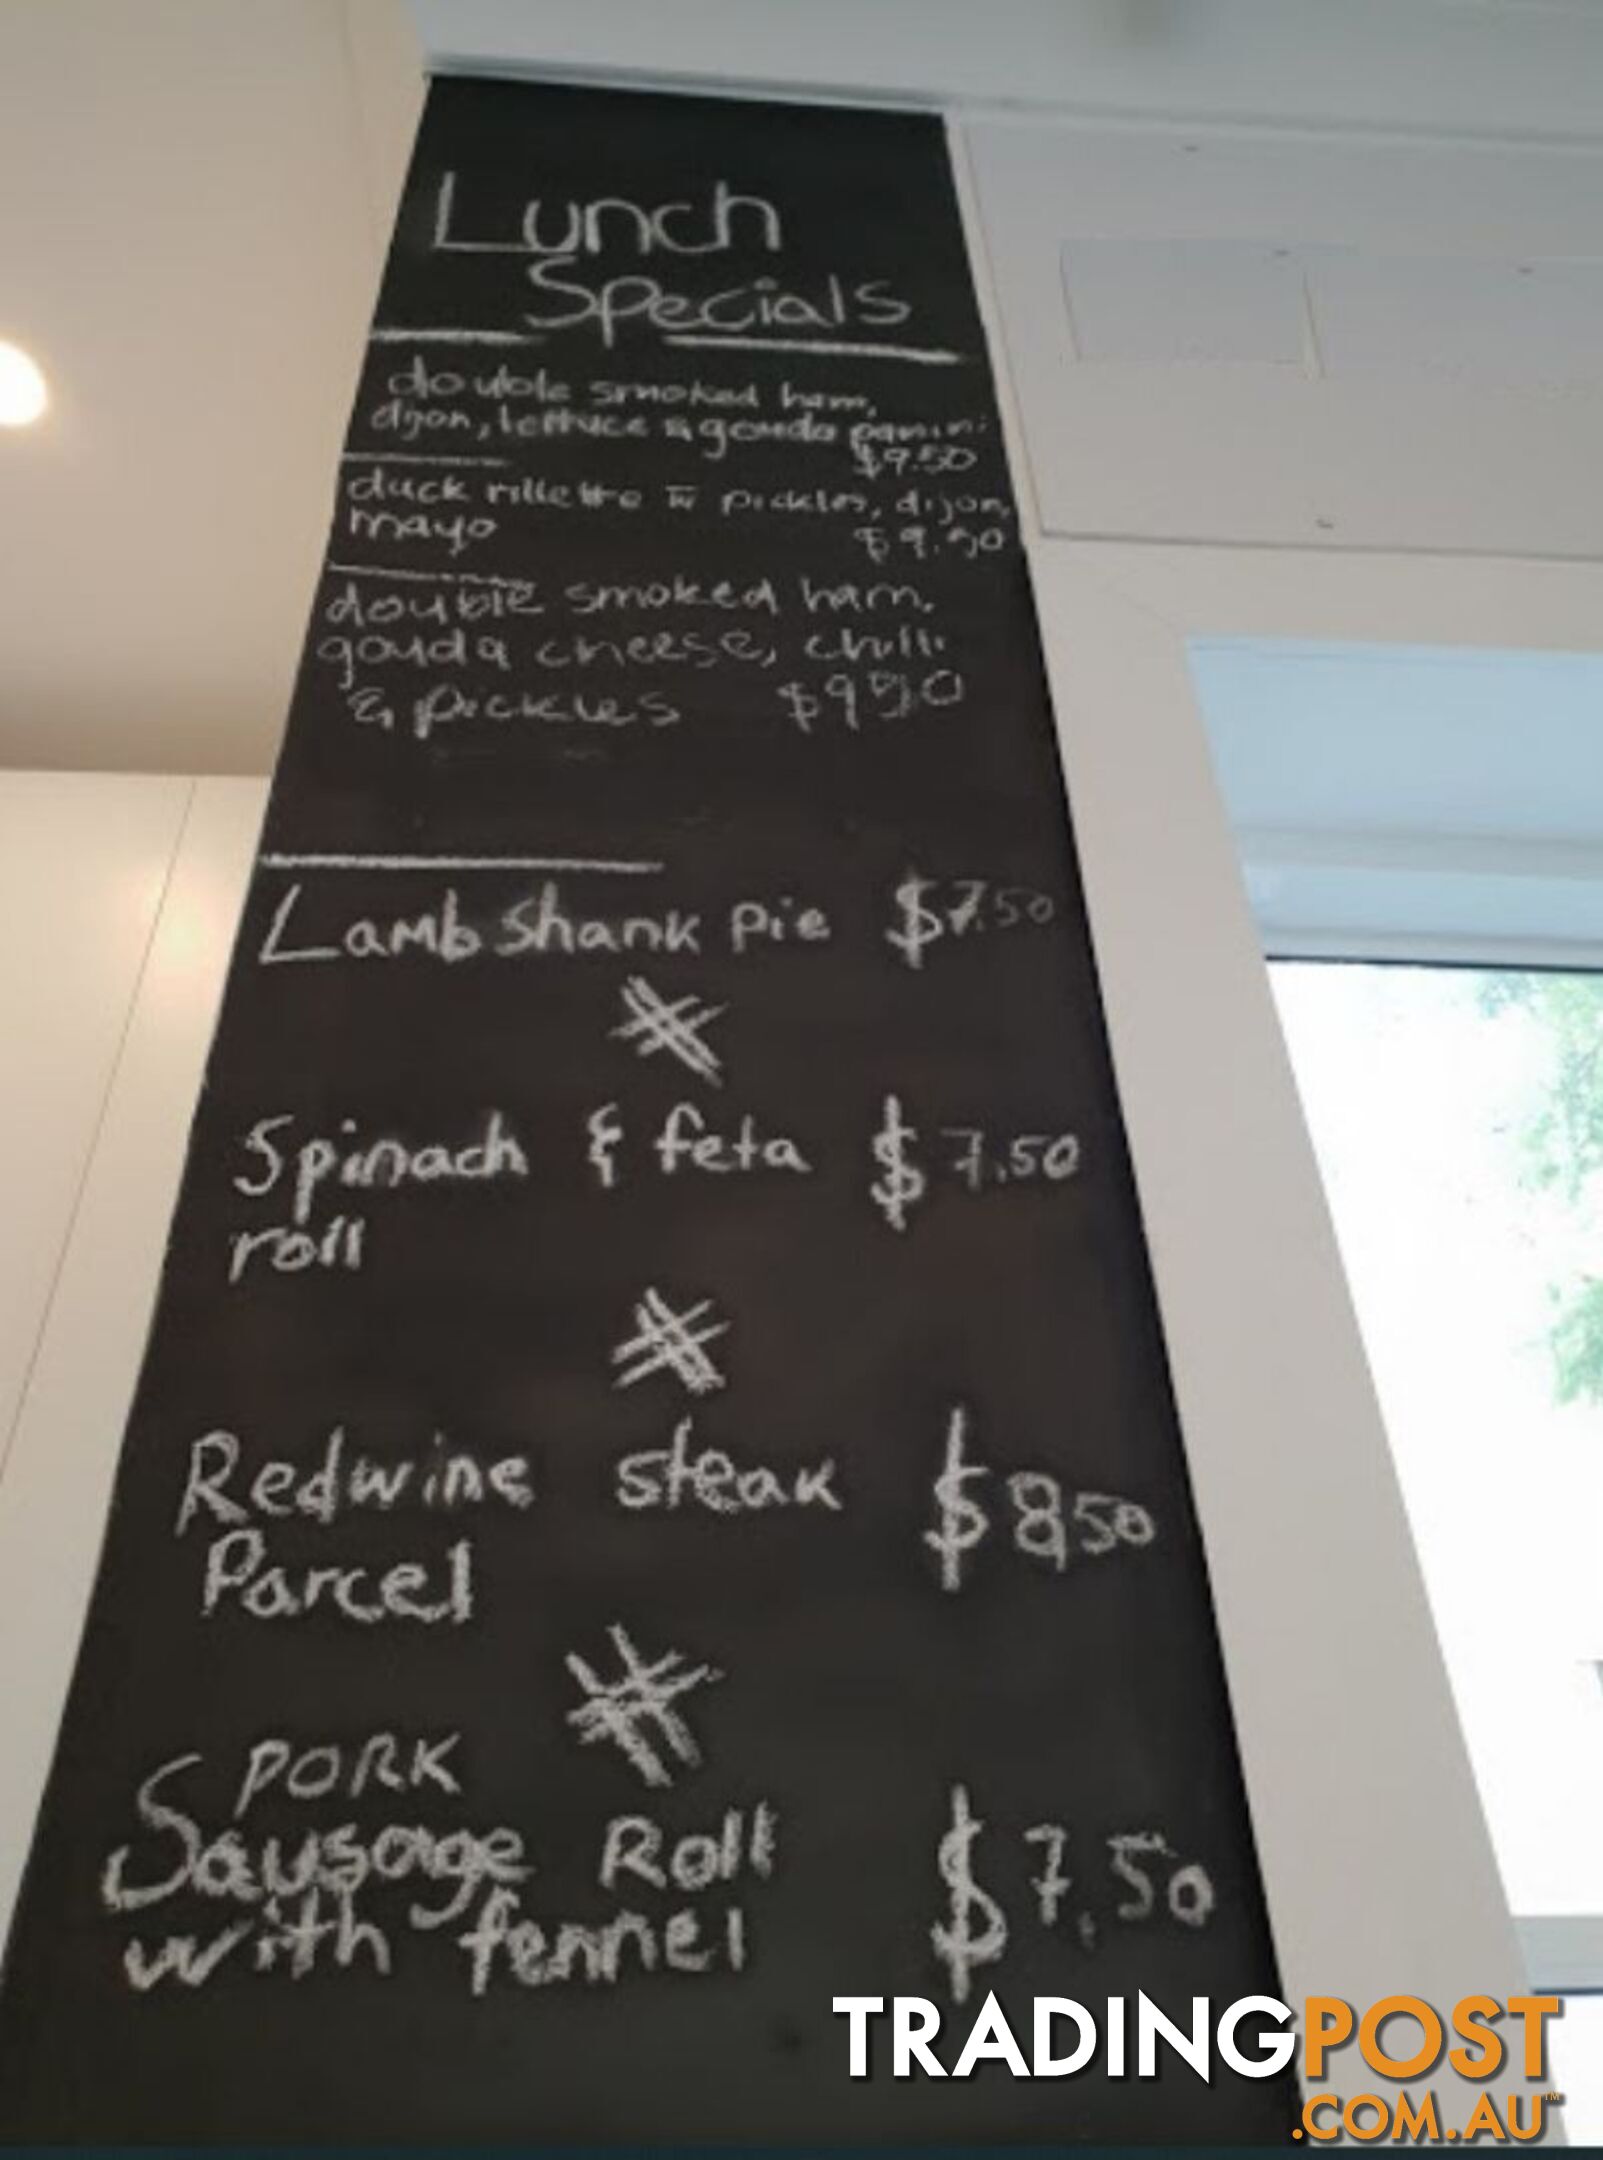 Lunch
Specials
double smoked ham,
dijon, lettuce & gouda panini
$9.50
duck rillette w pickles, dijon,
mayo $9.50
double smoked ham,
gouda cheese, chilli
& pickles $9.50
Lamb shank pie $7.50
Spinach & feta $7.50
roll
Redwine steak $8.50
Parcel
PORK
Sausage Roll $7.50
with fennel
TRADINGPOST
.COM.AU™